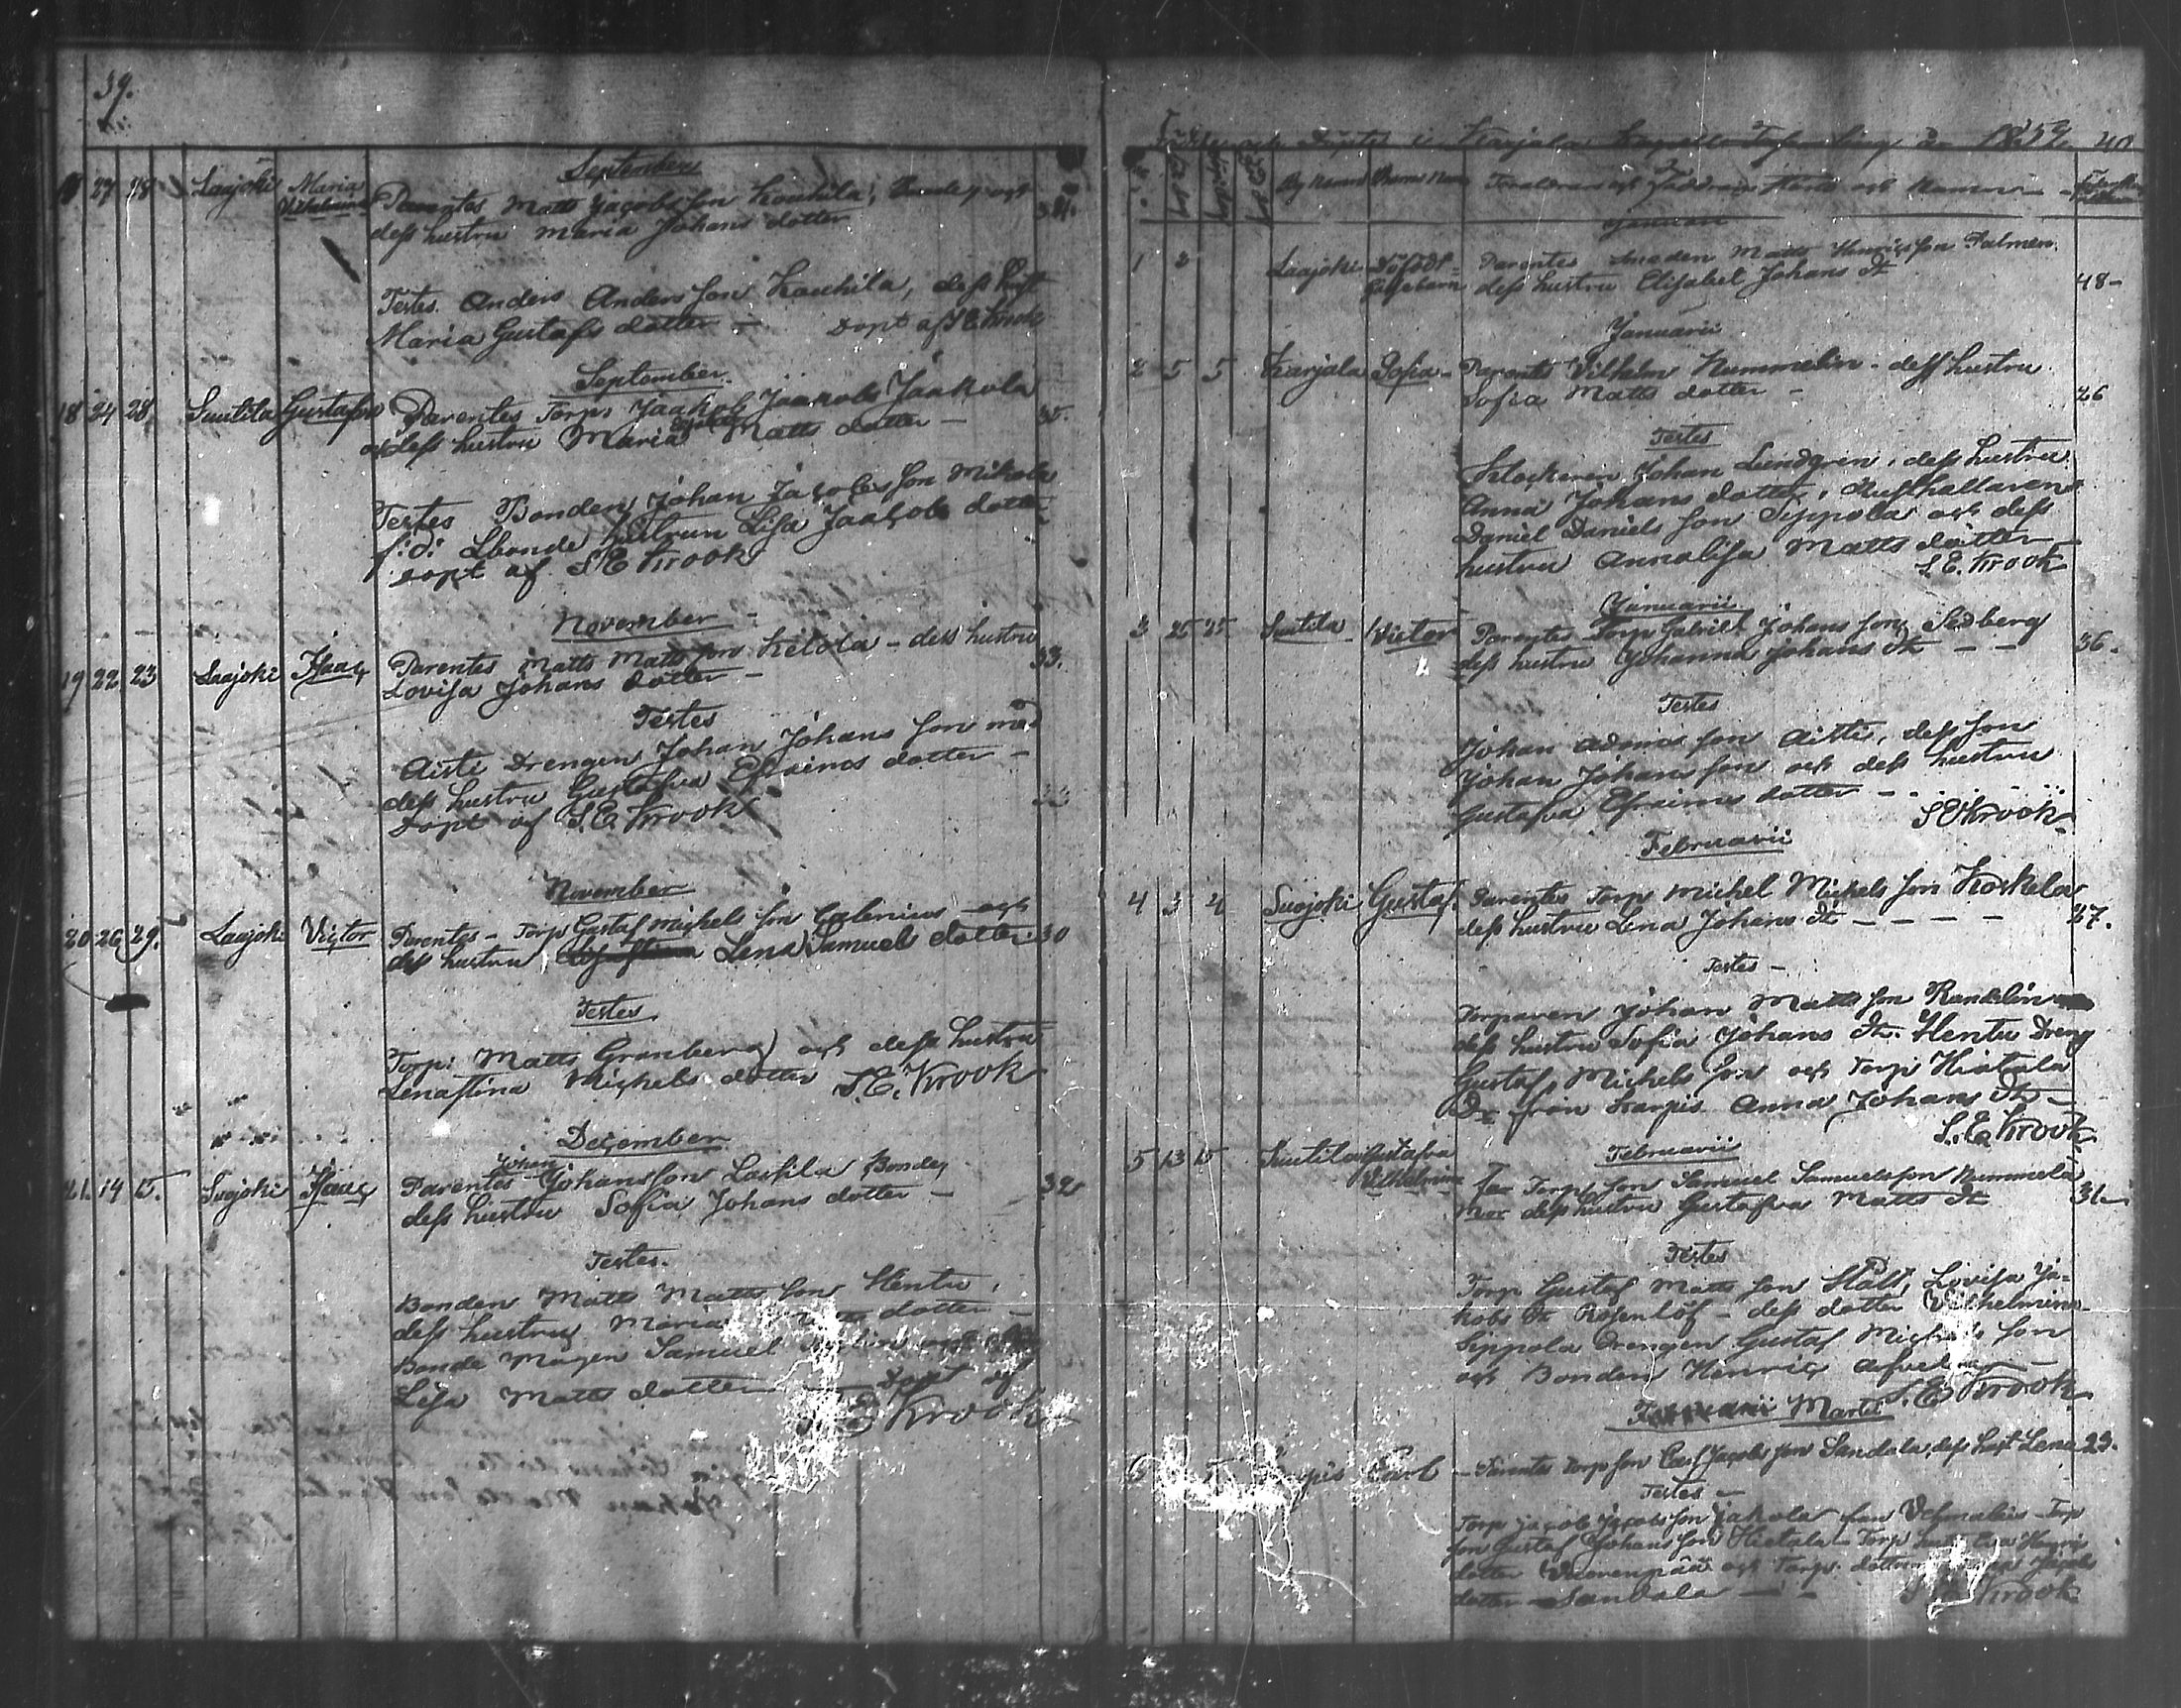 39.
September
27 28 Laajoki Maria Vilhelmina Parentes Matts Jacobs son Kouhila, och 34.
dess hustru Maria Johans dotter
Testes Anders Anders son Kouhila, dess hust
Maria Gustafs dotter — Döpt af S E Krook
September
18 24 28 Suutila Gustafva Parentes Torp. Jaakob Jaakobs Jaakola 35.
och dess hustru Maria Matts dotter —
Testes Bonden Johan Jacobs son Mikola
hustrun Lisa Jaacobs dotter
döpt af S E Krook
November
19 22 23 Laajoki Isaac Parentes Matts Matts son Ketola — dess hustru 33.
Lovisa Johans dotter —
Testes
Aisti Drengen Johan Johans son med
dess hustru Gustafva Efraims dotter —
Döpt af S. E. Krook
November
20 26 29. Laajoki Victor Parentes — Torp Gustaf Michels son Calenius och 30
dess hustru Lena Samuels dotter
Testes
Torp: Matts Granberg och dess hustru
Lenastina Michels dotter S. E. Krook
December
21. 14 15. Suojoki Isaac Parentes Johan Johansson Laskila Bonde, 39
dess hustru Sofia Johans dotter —
Testes.
Bonden Matts Matts son Hentu,
dess hustru Maria dotter —
Bonde Magen Samuel
Lisa Matts dotter — Döpt af
S E Krook
Födde och Döpte i Karjala Capells Församling år 1859. 40
By Namn Barns Namn Föräldrars och Faddrars Stånd och Namn
Januari
1 2 Laajoki Dödfödt Parentes Smeden Matts Henrics son Palmen. 48 —
dess hustru Elisabet Johans dr
Januarii
2 5 5 Karjala Sofia — Parentes Vilhelm Nummelin — dess hustru 26
Sofia Matts dotter —
Testes
Klockaren Johan Lundgren, dess hustru
Anna Johans dotter, Rusthallaren
Daniel Daniels son Seppola och dess
hustru Annalisa Matts dotter —
S. E. Krook
Januarii
3 25 25 Suutila Victor Parentes Torp Gabriel Johans son Sedberg 36.
dess hustru Johanna Johans dr — —
Testes
Johan Adams son Aitti, dess son
Johan Johans son och dess hustru
Gustafva Efraims dotter —
S E Krook
Februarii
4 3 4 Suojoki Gustaf. Parentes Torp Michel Michels son Koskela 27.
dess hustru Lena Johans dr — — — —
Testes —
Torparen Johan Matts son Randelin
dess hustru Sofia Johans dr. Hentu Dreng
Gustaf Michels son och Torp Hietala
Dr från Karpis Anna Johans dr —
S. E. Krook
Februarii
5 13 15 Suutila Gustafva Vilhelmina Far Torp son Samuel Samuelsson Nummela 31
Mor dess hustru Gustafva Matts dr
Testes
Torp Gustaf Matts son Stålt, Lovisa Ja-
kobs dr Rosenlöf — dess dotter Vilhelmina —
Seppola Drengen Gustaf Michels son
och Bonden Henric
S. E. Krook
Martii
Carl — Parentes Torp son Carl Jacobs son Sandala, dess hust Lena 23.
Testes —
Torp Jacob Jacobs son Jakola från Vehmalais — Torp
son Gustaf Johans son Hietala — Torp Henrics
dotter Vuorenpää och Torp. dottern Jacobs
dotter — Sandala —
S E Krook